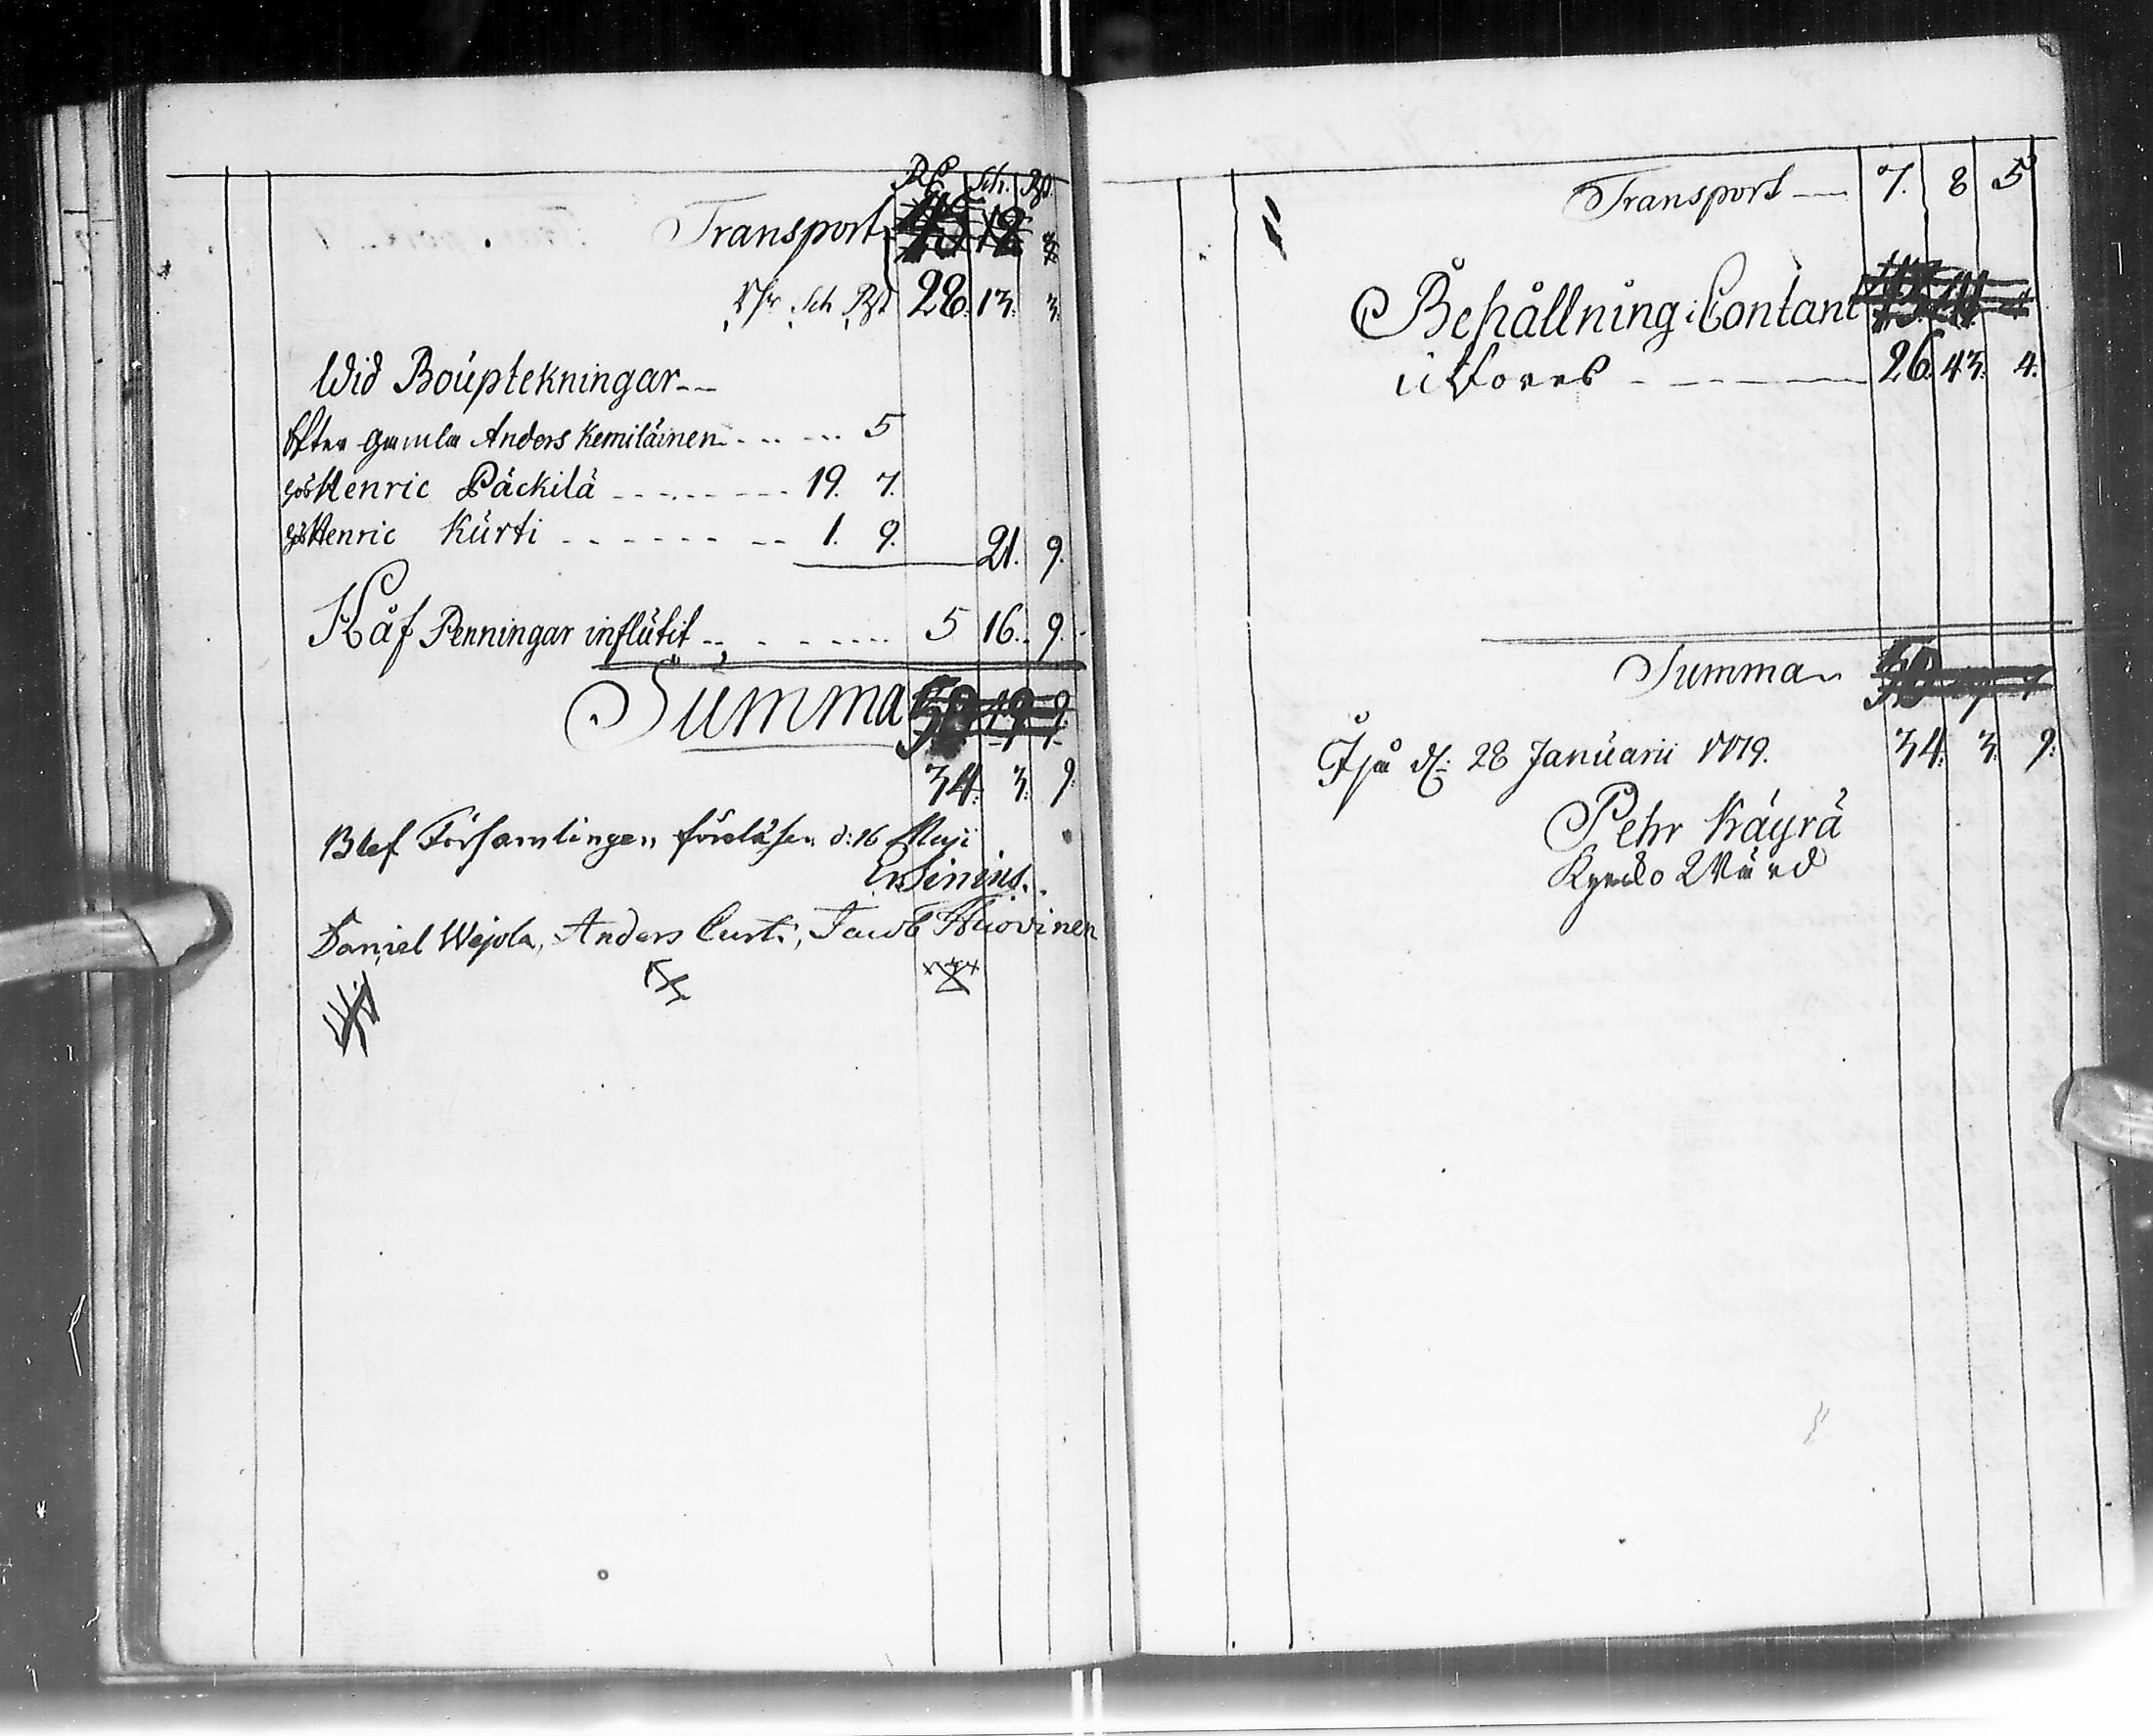 Rd Sch. Rst.
Transport 45 12
Sch Rst 28. 13. 3.
Wid Boúptekningar
Efter gamla Anders Kemiläinen 5
hos Henric Päckilä 19. 7.
hos Henric Kúrti 1. 9. 21. 9.
Håf Penningar inflútit 5 16. 9.
Súmma
34. 3. 9.
Blef Församlingen föreläsen d: 16 Maji
Daniel Wejola, Anders Curti, Jacob Huovinen
Transport 7. 8 5
Behållning i Contant
26. 43. 4.
Summa
d: 28 Janúarii 1819. 34. 3. 9.
Pehr Käyrä
Kyrcko Wärd